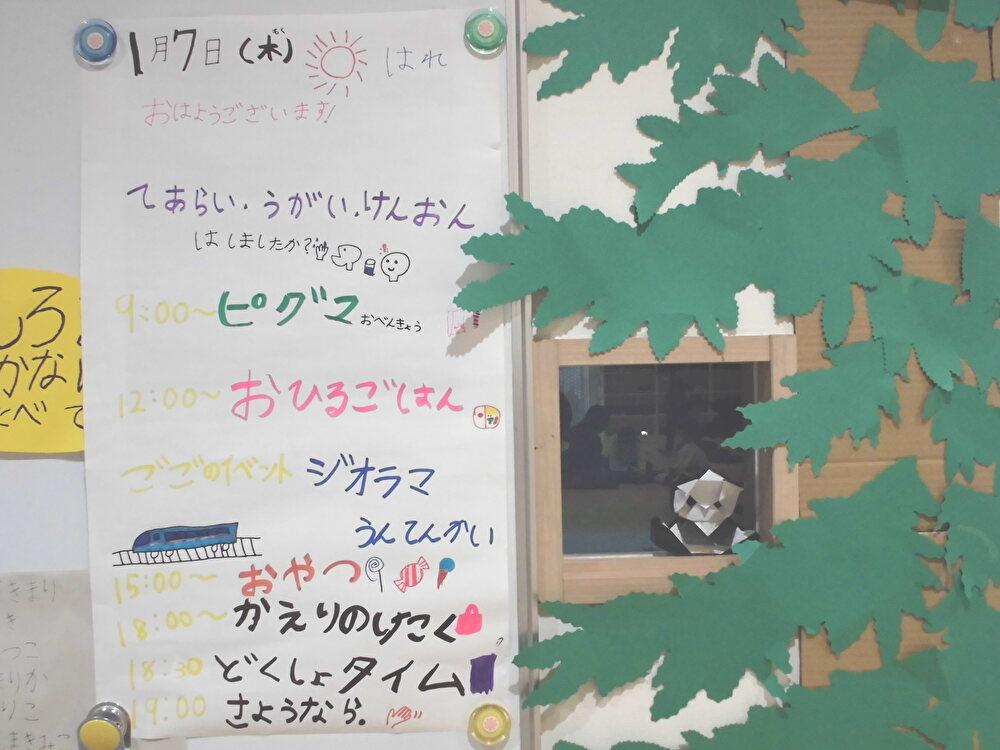 1月7日(木) はれ
おはようございます!
てあらい、うがい、けんおん
はしましたか?
9:00~ピグマ おべんきょう
12:00~おひるごはん
ごごのイベント ジオラマ
うんてんかい
15:00~おやつ
18:00~かえりのけたく
18:30 どくしょタイム
19:00 さようなら。
しろ
かな
べて
きまり
き
つこ
まりか
りこ